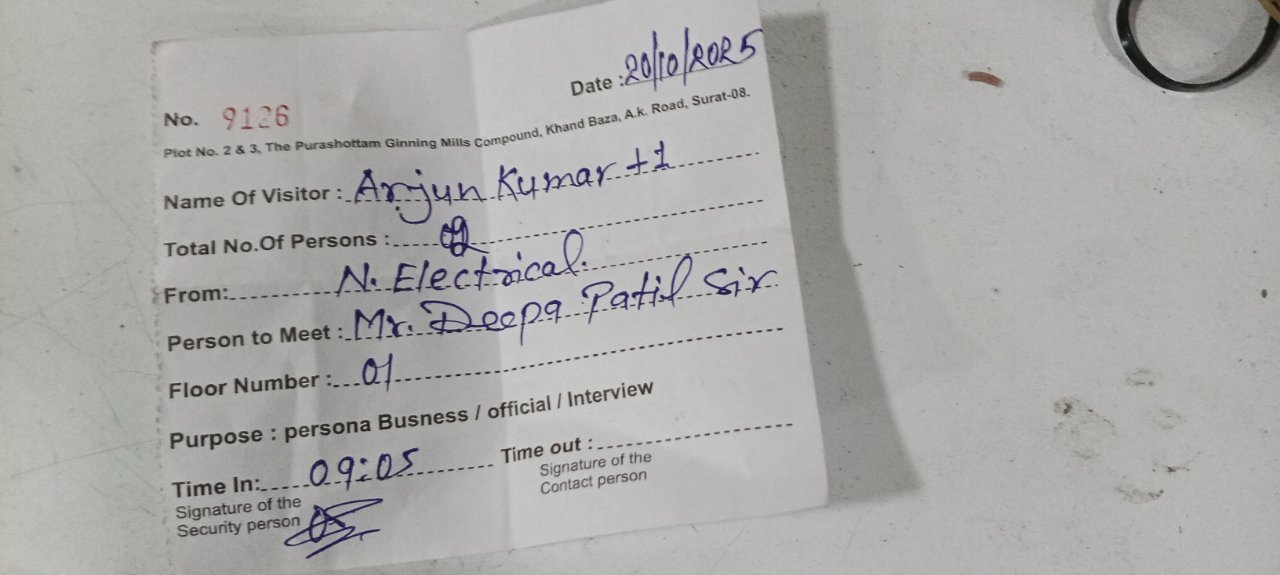 Date : 20/10/2025
No. 9126
Plot No. 2 & 3, The Purashottam Ginning Mills Compound, Khand Baza, A.k. Road, Surat-08.
Name Of Visitor : Arjun Kumar +1
Total No.Of Persons : 02
From: N. Electrical.
Person to Meet : Mr. Deepa Patil Sir
Floor Number : 01
Purpose : persona Busness / official / Interview
Time In: 09:05 Time out :
Signature of the
Security person
Signature of the
Contact person